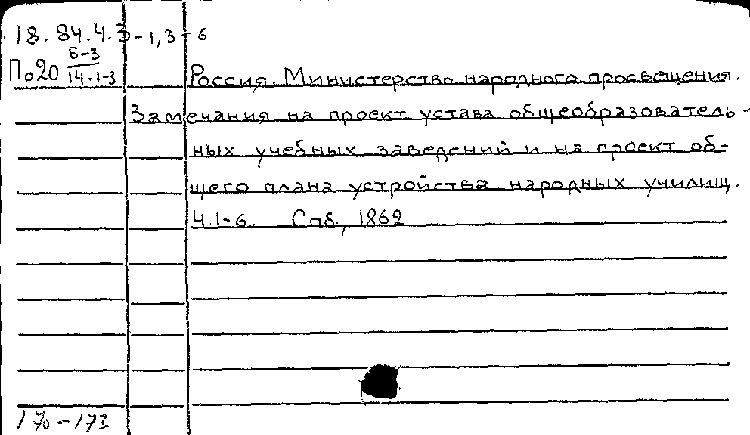 18.84.4.3-1,3-6
По20 6-3/14-1-3
Россия. Министерство народного просвещения.
Замечания на проект устава общеобразователь-
ных учебных заведений и на проект об-
щего плана устройства народных училищ.
Ч.1-6. Спб., 1862
170-173